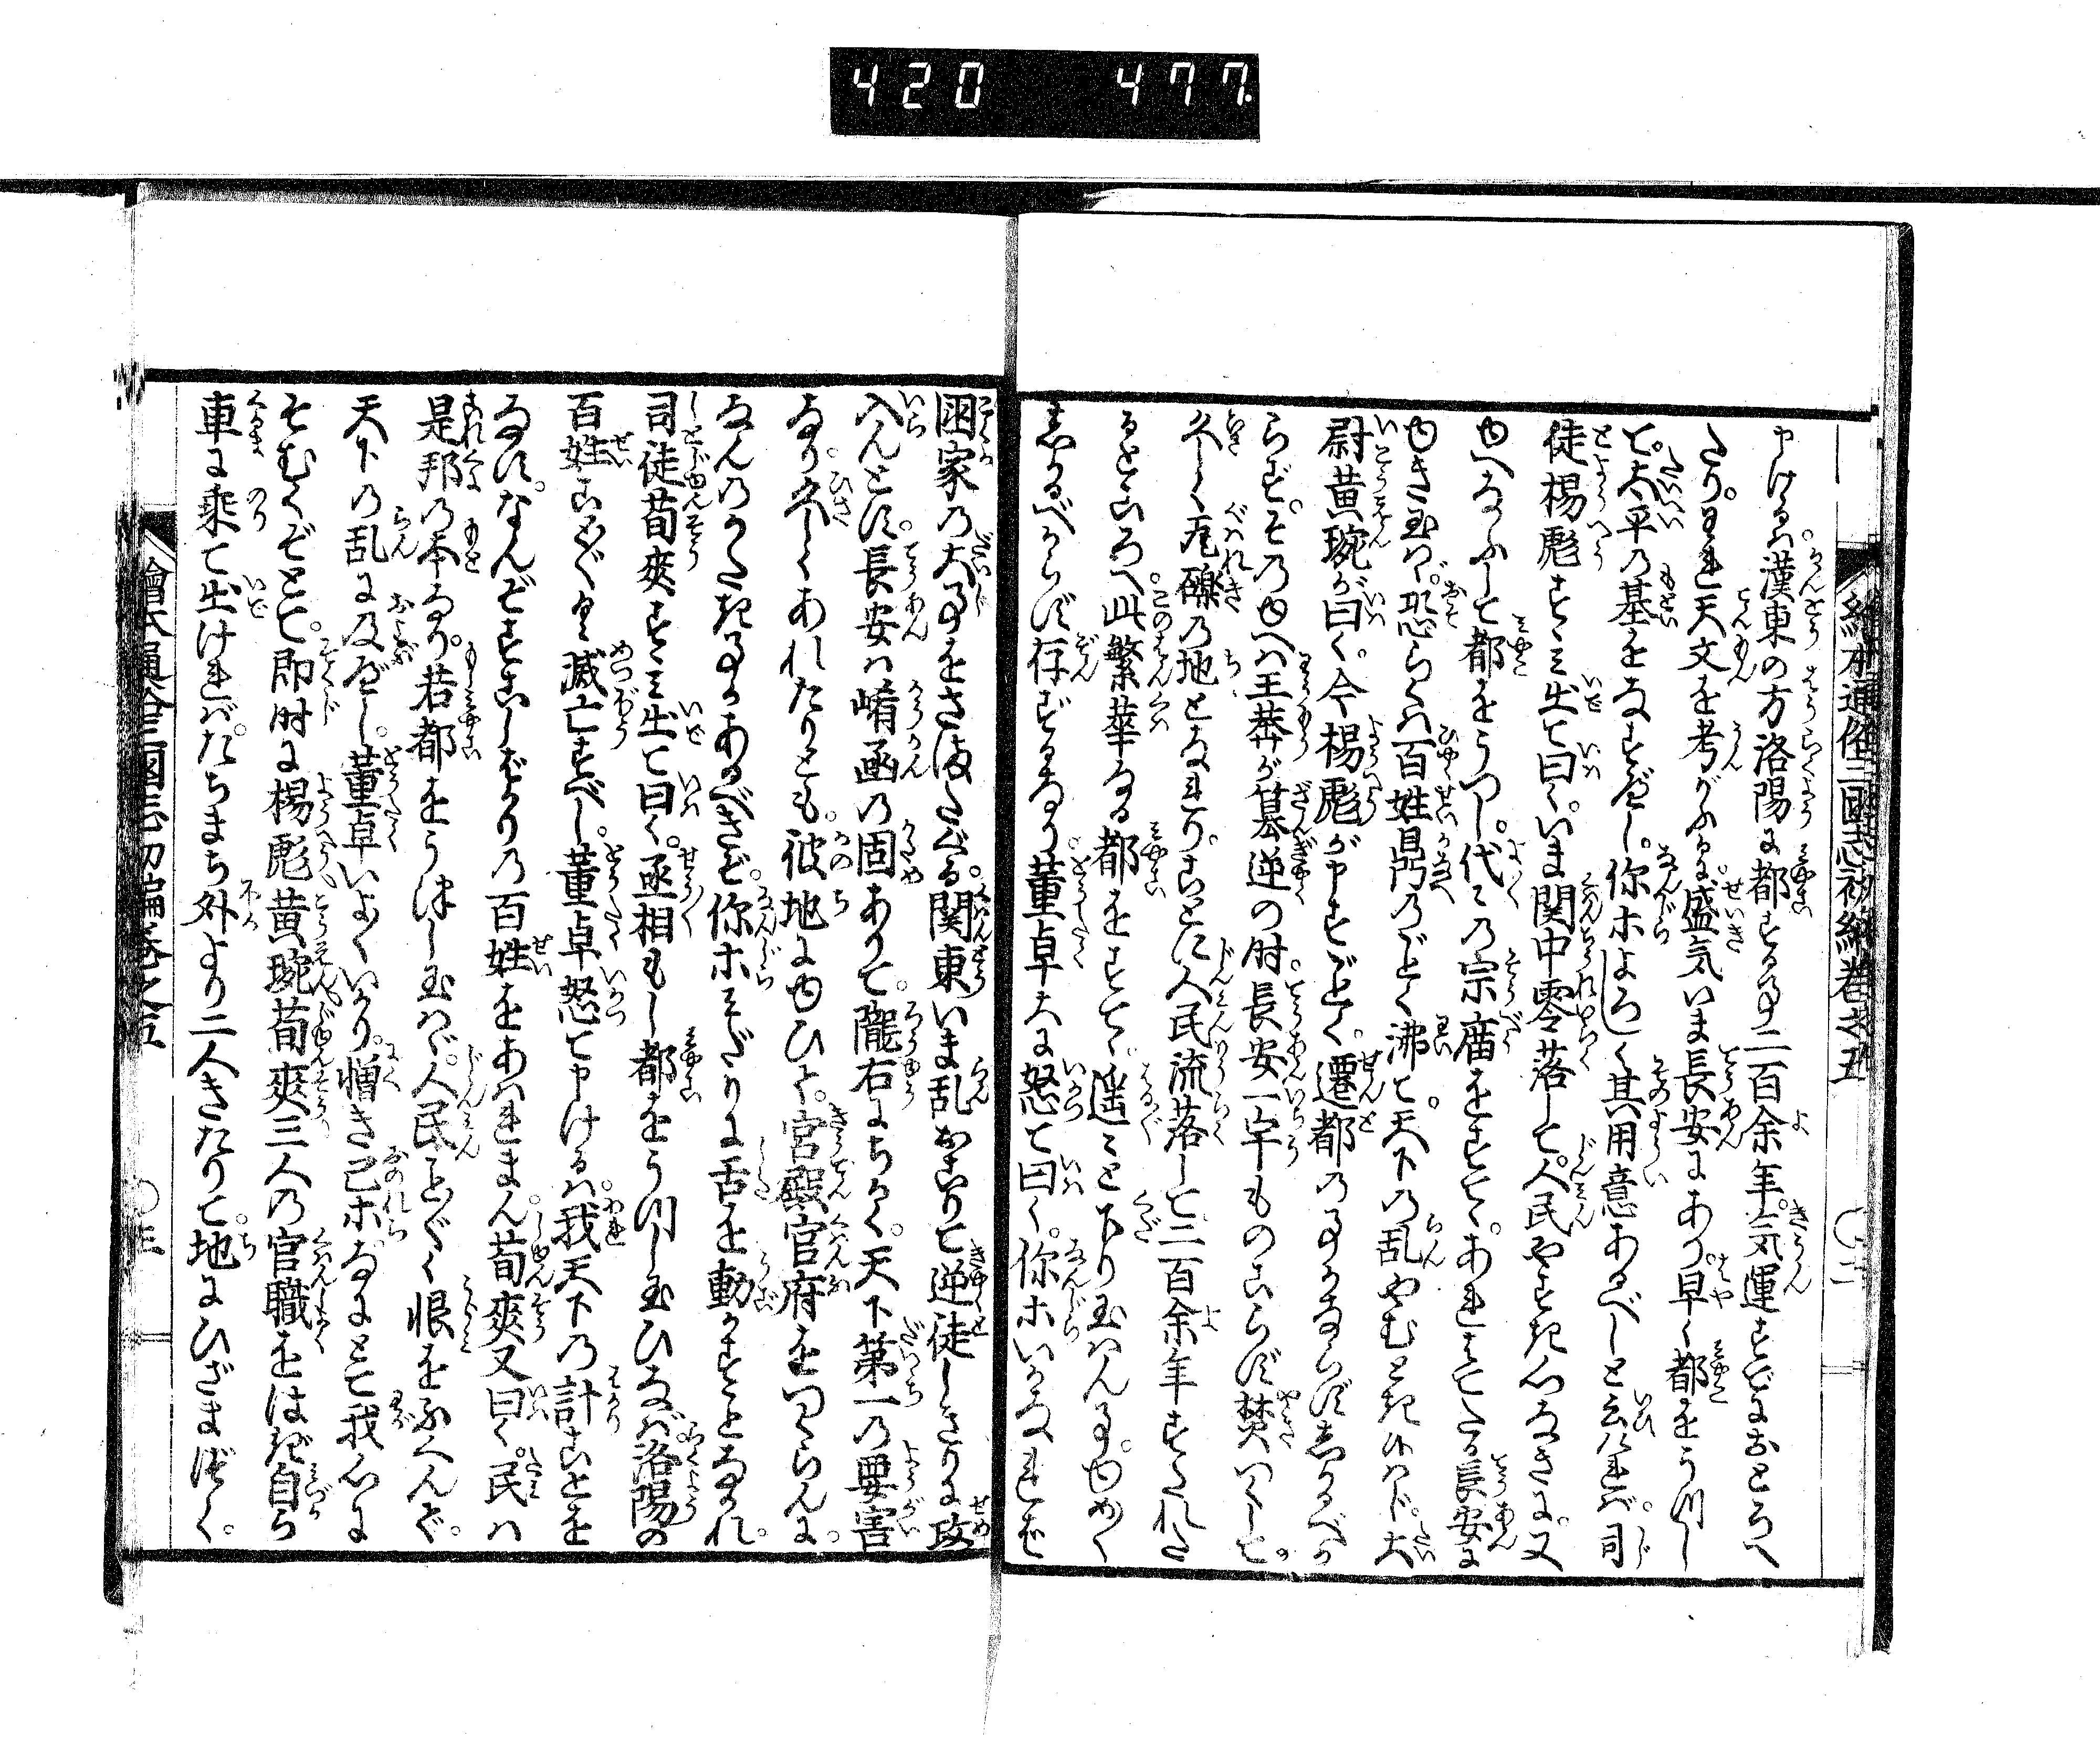 420 477.
絵本通俗三國志初編巻之五
〇二
申けるハ。漢東の方洛陽に都する事二百余年。気運すでにおとろへ
たり。われ天文を考がふるに盛気いま長安にあり。早く都をうつし
て。太平の基をなすべし。你ホよろしく其用意あるべしと云けれバ。司
徒楊彪すゝミ出て曰く。いま関中零落して。人民やすき心なきに。又
ゆへなふして都をうつし。代々の宗廟をすてゝ。あれはてたる長安に
ゆき玉ハヾ。恐らくハ百姓鼎のごとく沸て。天下の乱やむとき候ハじ。太
尉黄琬が曰く。今楊彪が申すごとく。遷都の事かならずしかるべか
らず。そのゆへハ王莽が簒逆の時。長安一宇ものこらず焚つくして。
久しく瓦礫の地となれり。ことに人民流落して二百余年すたれた
るところへ。此繁華なる都をすてゝ。遥々と下り玉ハん事。ゆめ〱
しかるべからず存ずるなり。董卓大に怒て曰く。你ホいかなれば
国家の大事をさまたぐる。関東いま乱おこりて逆徒しきりに攻
入んとす。長安ハ崤函の固ありて。隴右にちかく。天下第一の要害
なり。久しくあれたりとも。彼地にゆひて。宮殿官府をつくらんに。
なんのかたき事かあるべきぞ。你ホミだりに舌を動かすことなかれ。
司徒荀爽すゝミ出て曰く。丞相もし都をうつし玉ひなバ洛陽の
百姓ことごとく滅亡すべし。董卓怒て申けるハ。我天下の計ことを
なす。なんぞすこしばかりの百姓をあハれまん。荀爽又曰く。民ハ
是邦の本なり。若都をうつし玉ハヾ。人民ことごとく恨をふくんで。
天下の乱に及ぶべし。董卓いよ〱いかり。憎き己ホなにとて我心に
そむくぞとて。即時に楊彪黄琬荀爽三人の官職をはぎ。自ら
車に乗て出けれバ。たちまち外より二人きたりて。地にひざまづく。
繪本通俗三國志初編巻之五
〇三